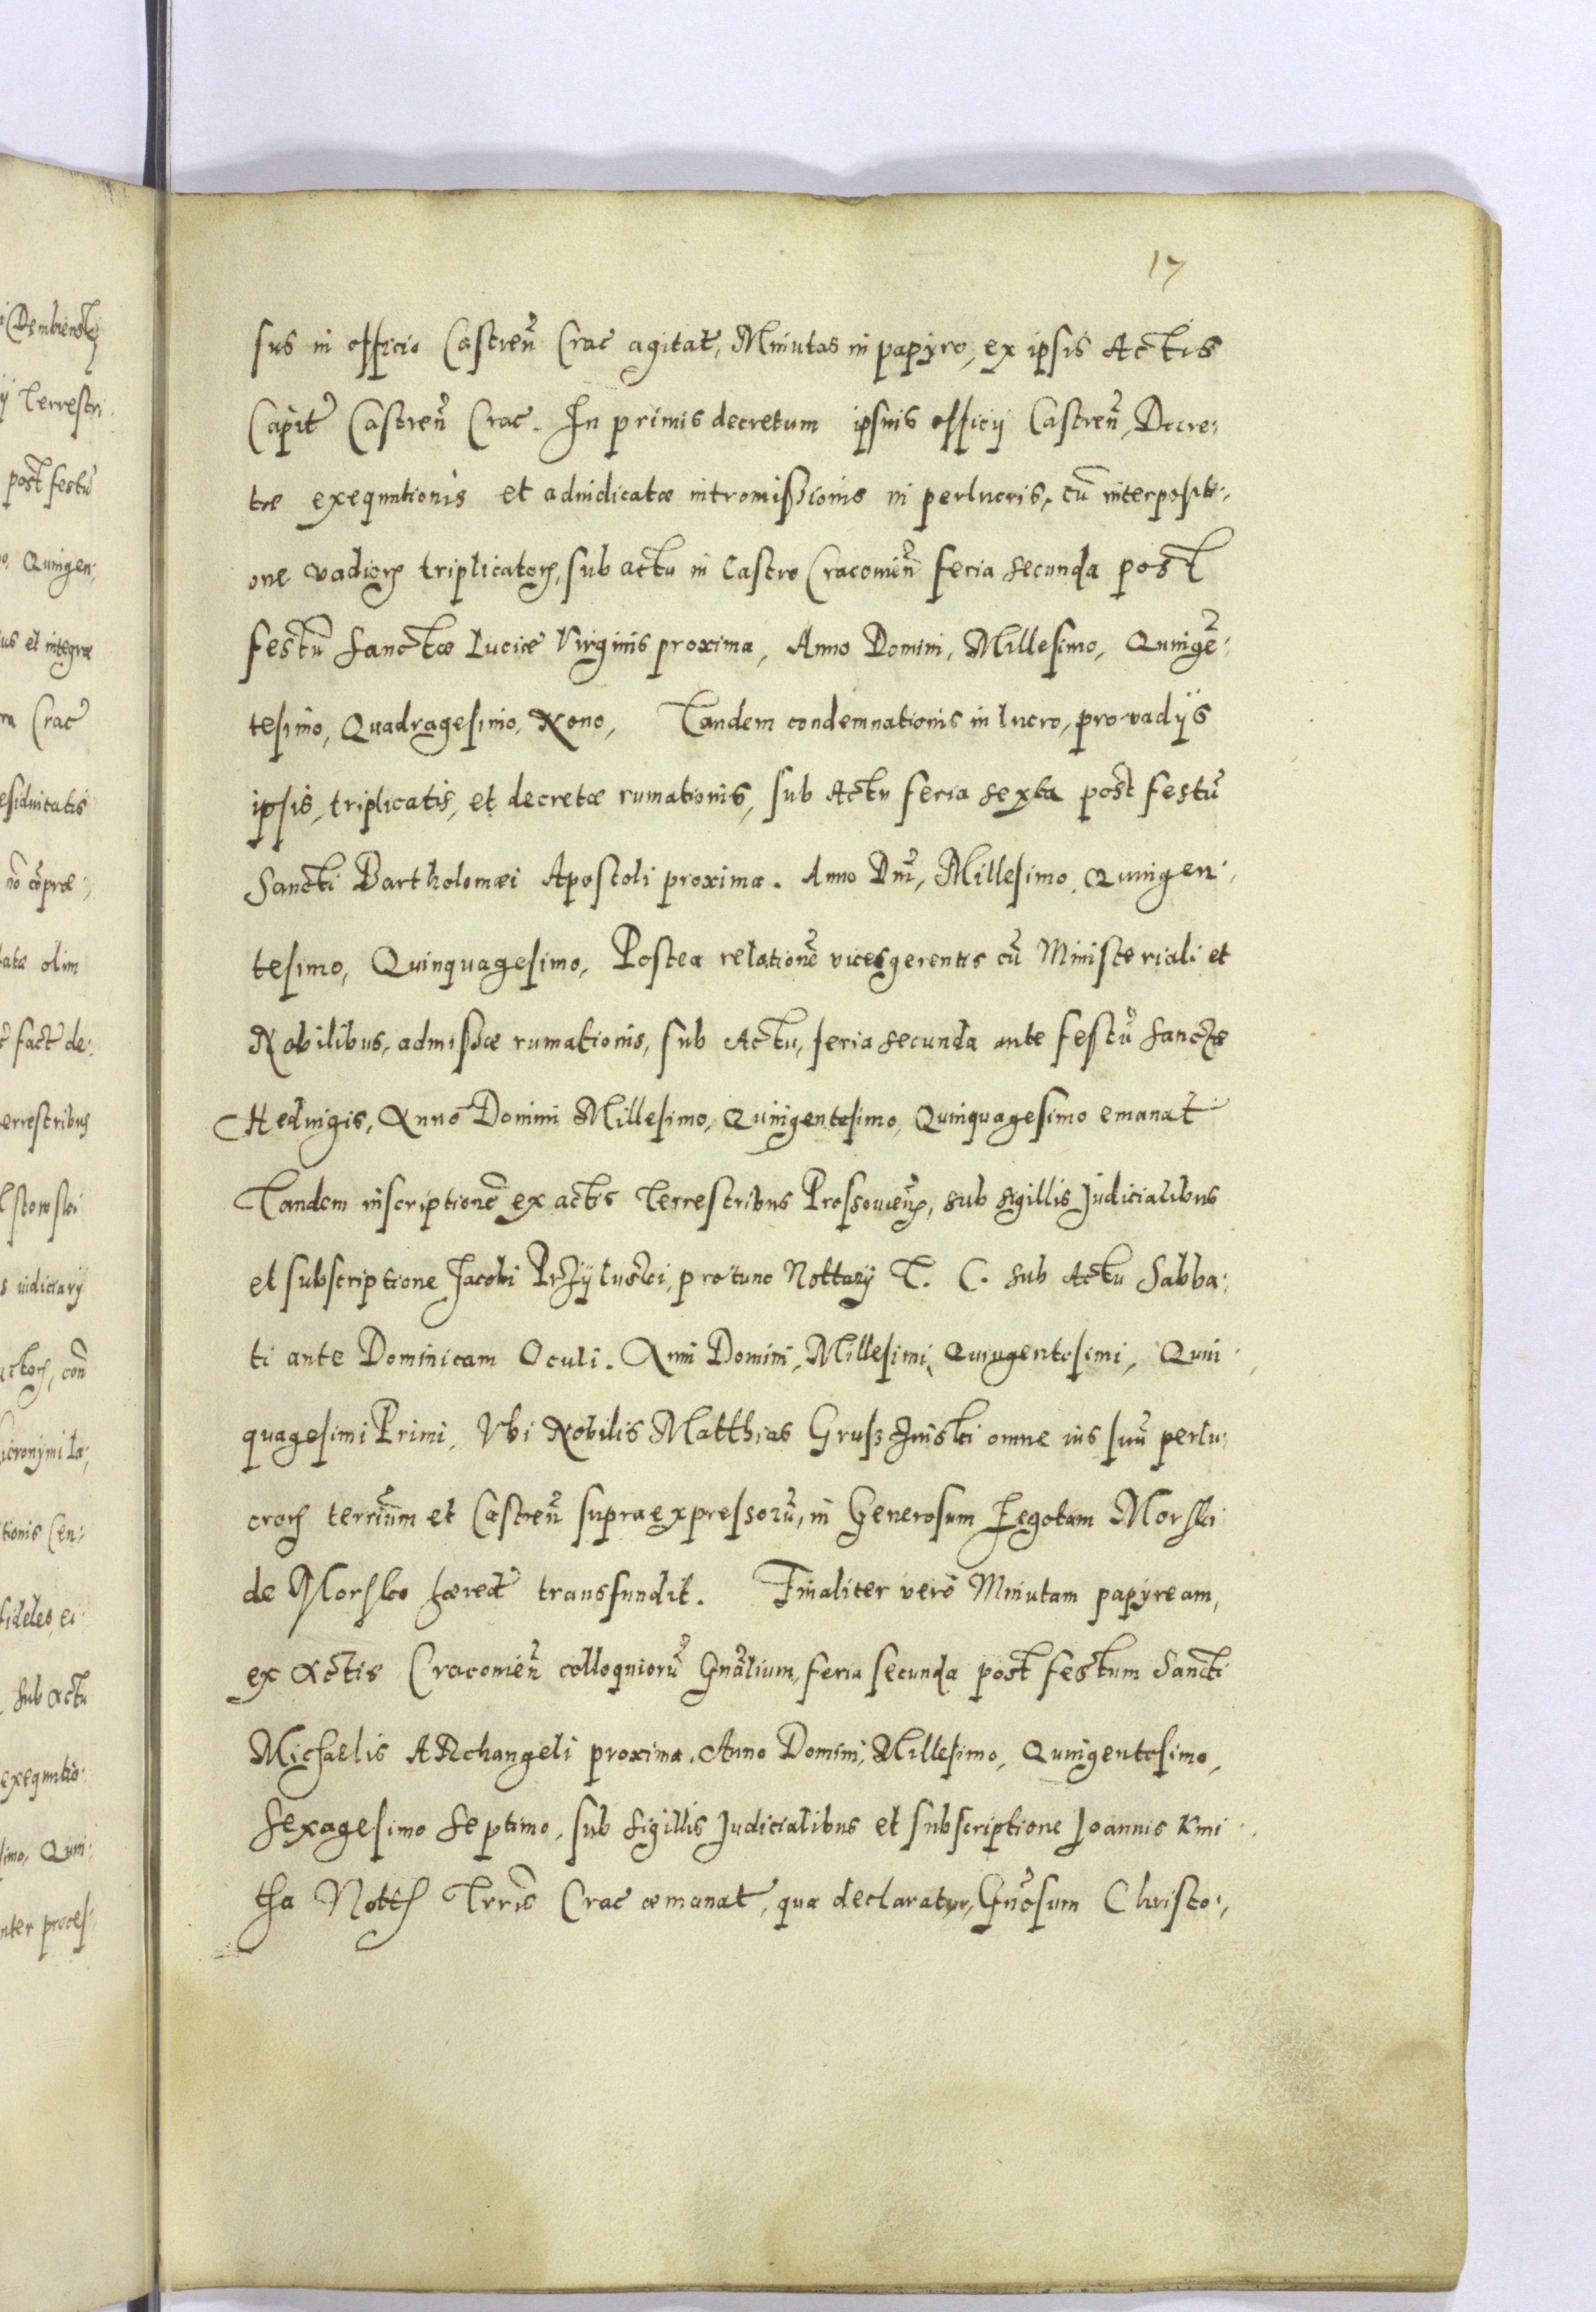 17
sus in officio Castren̄ Crac agitat, Minutas in papyro, ex ipsis Actis
Capit Castren̄ Crac. In primis decretum ipsius officij Castren̄, Decre:
tæ exequutionis et adiudicatæ intromissionis in perlucris, cū interpositi:
one vadiorꝝ triplicatorꝝ, sub actu in Castro Cracouien̄ feria secunda post
festū Sanctæ Luciæ Virginis proxima, Anno Domini, Millesimo, Quingē:
tesimo, Quadragesimo, Nono, Tandem condemnationis in lucro, pro vadijs
ipsis, triplicatis, et decretæ rumationis, sub Actu feria sexta post festū
Sancti Bartholomæi Apostoli proxima. Anno Dni̅, Millesimo, Quingen:
tesimo, Quinquagesimo, Postea relationē vicesgerentis cū Ministeriali et
Nobilibus, admissæ rumationis, sub Actu, feria secunda ante festū Sanctæ
Heduigis, Anno Domini Millesimo, Quingentesimo, Quinquagesimo emanat
Tandem inscriptionē ex actis Terrestribus Prossouien̄, sub sigillis Judicialibus
et subscriptione Jacobi Przÿluski, pro tunc Nottarÿ T. C. sub Actu Sabba:
ti ante Dominicam Oculi. Anni Domini, Millesimi, Quingentesimi, Quin:
quagesimi Primi, Vbi Nobilis Matthias Grusz〈…〉inski omne ius suū perlu:
crorꝝ terriūm et Castren̄ supraexpressorū, in Generosum Zegotam Morski
de Morsko hæred transfundit. Finaliter vero Minutam papyream,
ex Actis Cracouien̄ colloquiorū Gnālium, feria secunda post festum Sancti
Michaelis ARchangeli proxima. Anno Domini, Millesimo, Quingentesimo,
Sexagesimo Septimo, sub sigillis Judicialibus et subscriptione Joannis Kmi:
tha Nott Trris̄ Crac æmanat, qua declaratur, Gnōsum Christo: